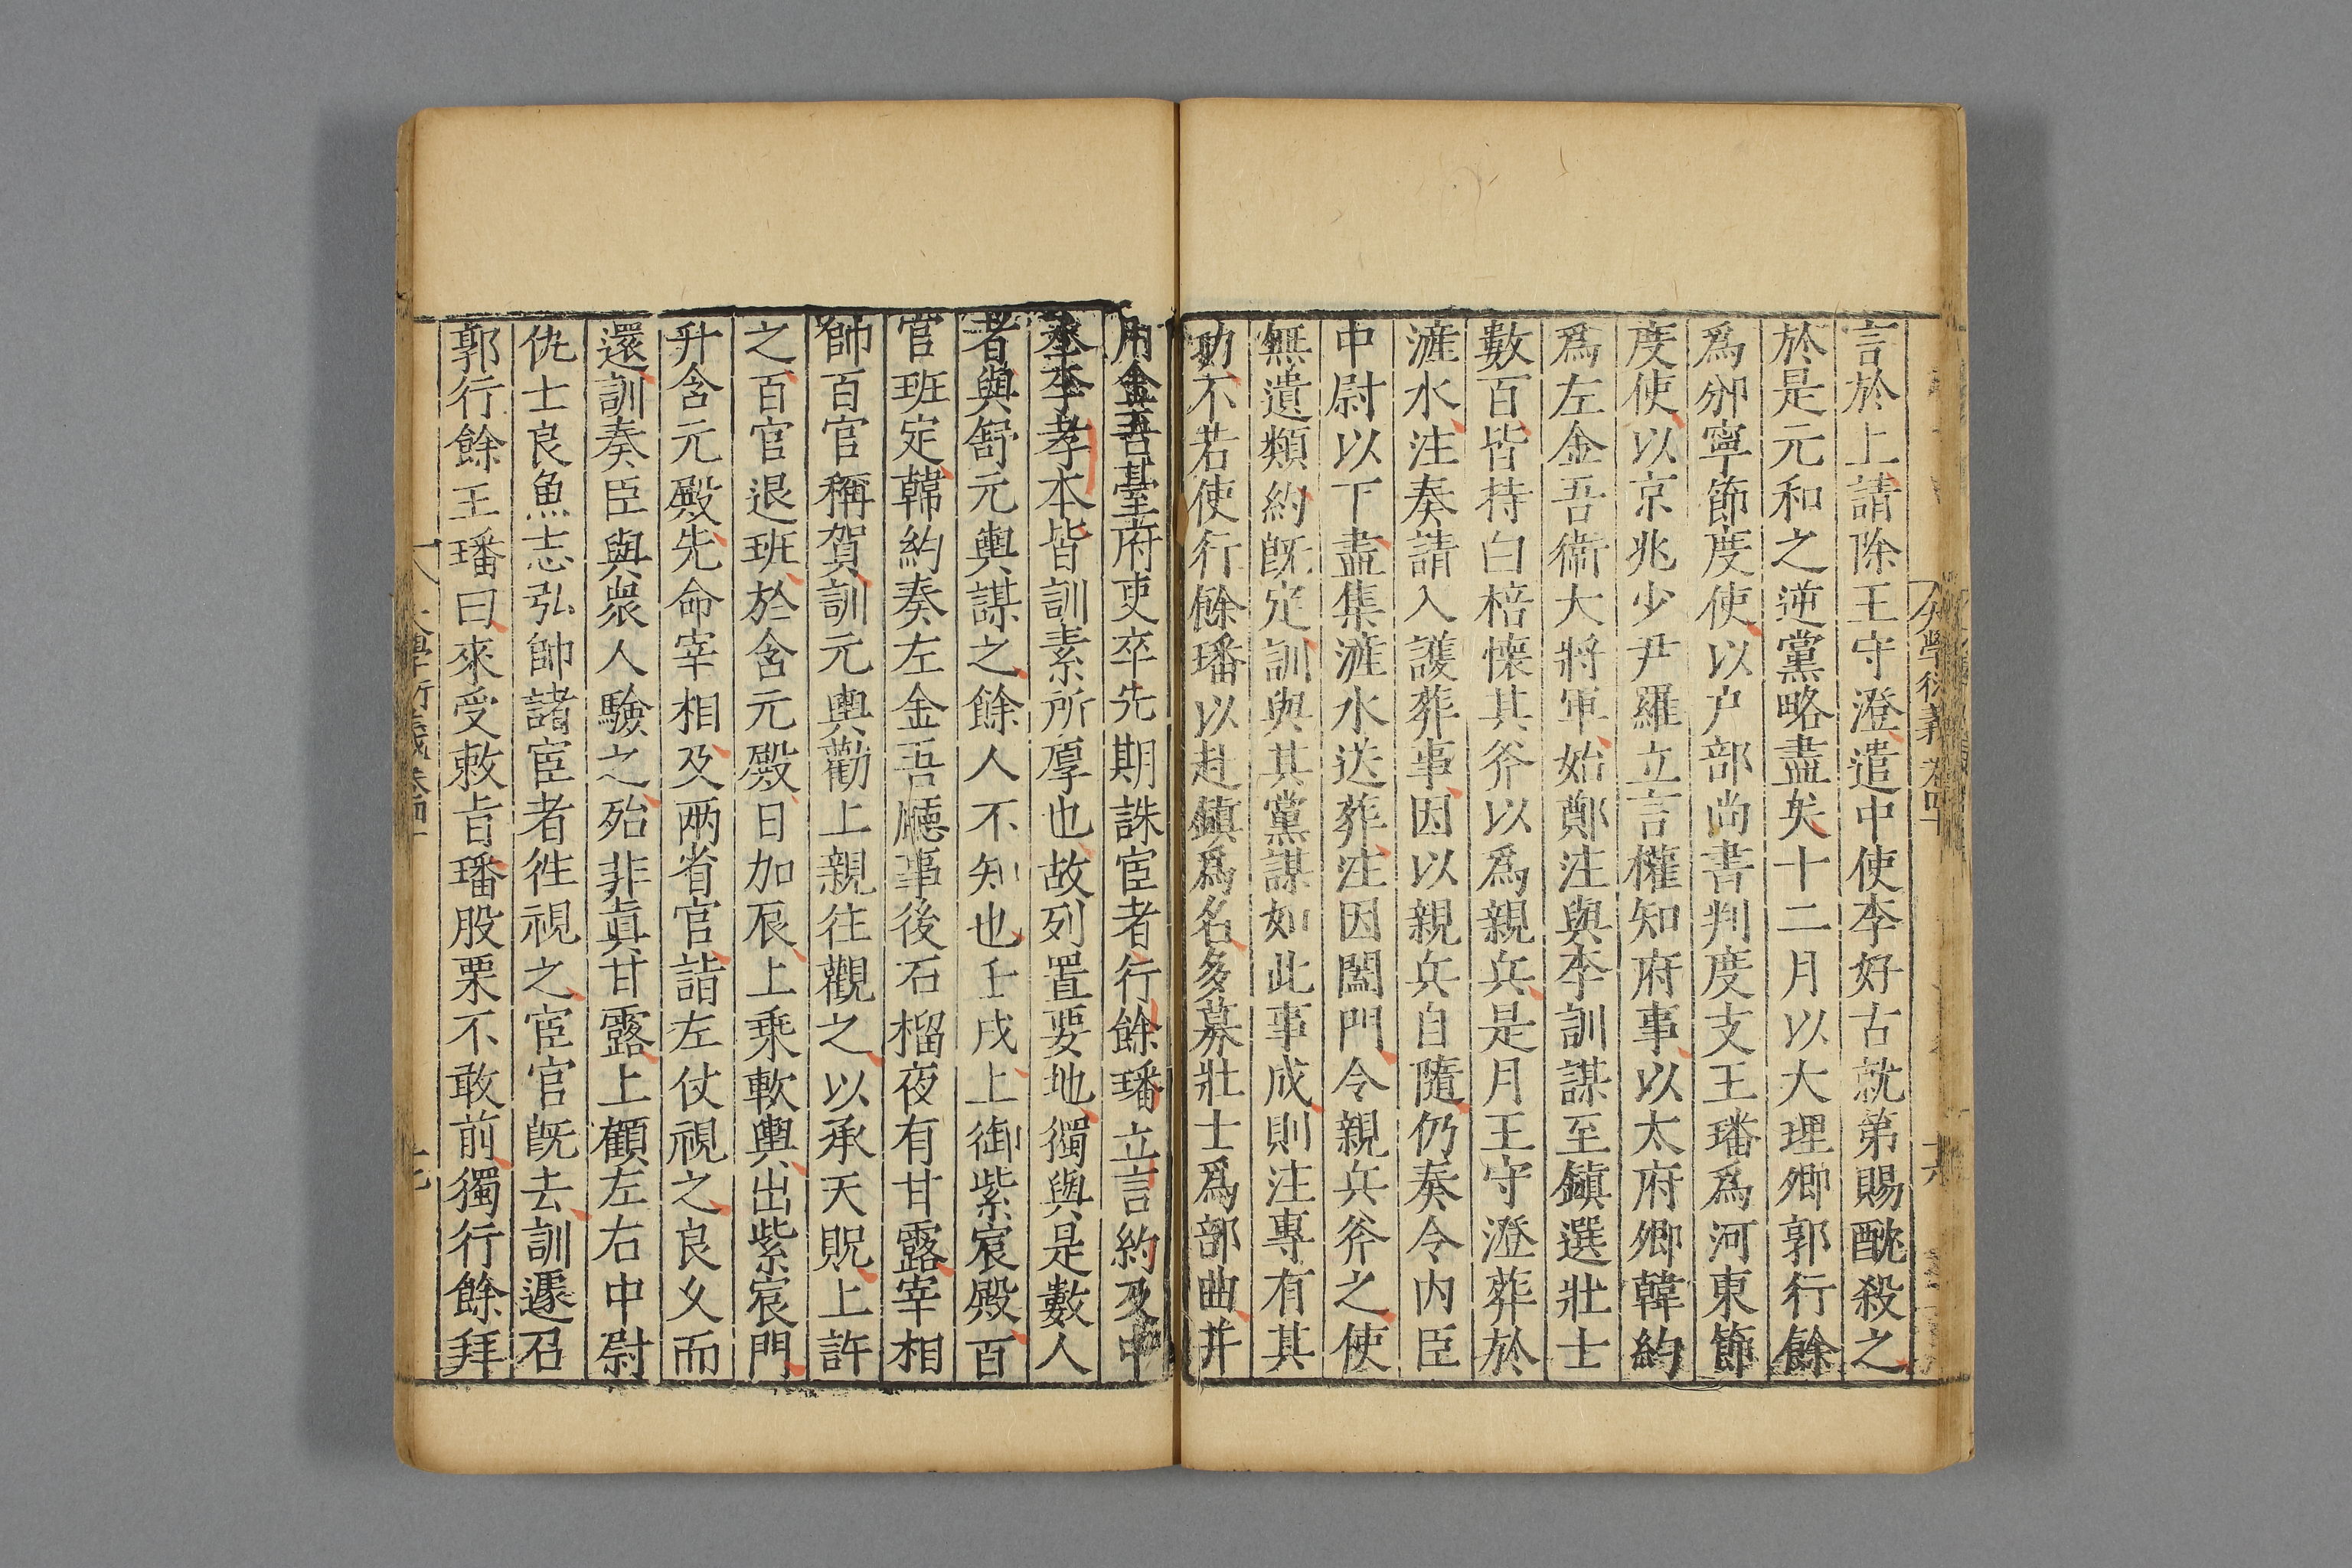 言於上請除王守澄遣中使李好古就第賜酖殺之
於是元和之逆黨略盡矣十二月以大理卿郭行餘
爲邠寧節度使以户部尚書判度支王璠爲河東節
度使以京兆少尹羅立言權知府事以太府卿韓約
爲左金吾衛大將軍始鄭注與李訓謀至鎮選壯士
數百皆持白棓懷其斧以爲親兵是月王守澄葬於
滻水注奏請入護葬事因以親兵自隨仍奏令内臣
中尉以下盡集滻水送葬注因闔門令親兵斧之使
無遺類約旣定訓與其黨謀如此事成則注專有其
功不若使行餘璠以赴鎮爲名多募壯士爲部曲并
用金吾臺府吏卒先期誅宦者行餘璠立言約及中
丞李孝本皆訓素所厚也故列置要地獨與是數人
者與舒元輿謀之餘人不知也壬戌上御紫宸殿百
官班定韓約奏左金吾廳事後石榴夜有甘露宰相
帥百官稱賀訓元輿勸上親往觀之以承天貺上許
之百官退班於含元殿日加辰上乗軟輿出紫宸門
升含元殿先命宰相及兩省官詣左仗視之良乆而
還訓奏臣與衆人驗之殆非眞甘露上顧左右中尉
仇士良魚志弘帥諸宦者徃視之宦官旣去訓遽召
郭行餘王璠曰來受敕㫖璠股栗不敢前獨行餘拜
大學衍義卷四十